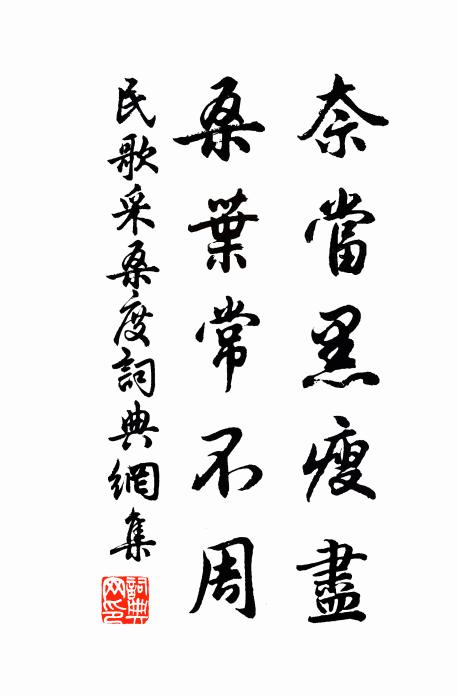 奈當黑瘦盡
桑葉常不周
民歌采桑度詞典網集
詞典